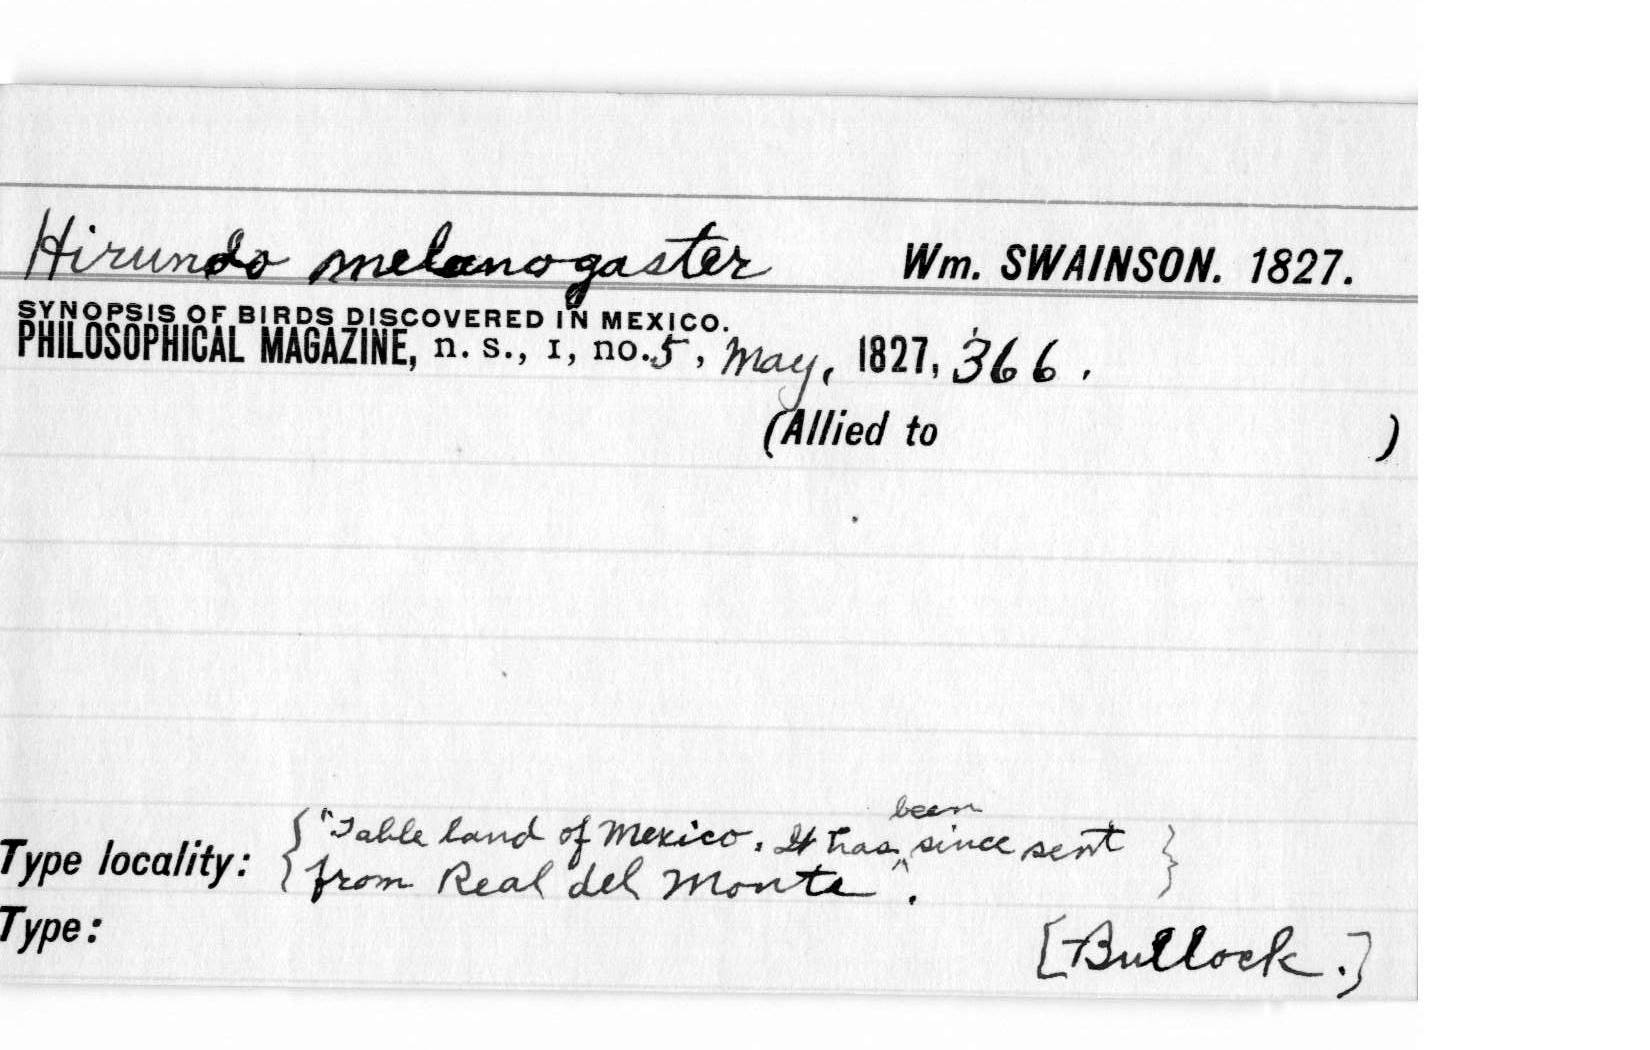 Hirundo melanogaster Wm. SWAINSON. 1827.
SYNOPSIS OF BIRDS DISCOVERED IN MEXICO.
PHILOSOPHICAL MAGAZINE, n. s., I, no. 5, May, 1827, 366.
(Allied to )
been
Type locality: { "Table land of Mexico. It has ^ since sent }
from Real del Monte".
Type: [Bullock.]